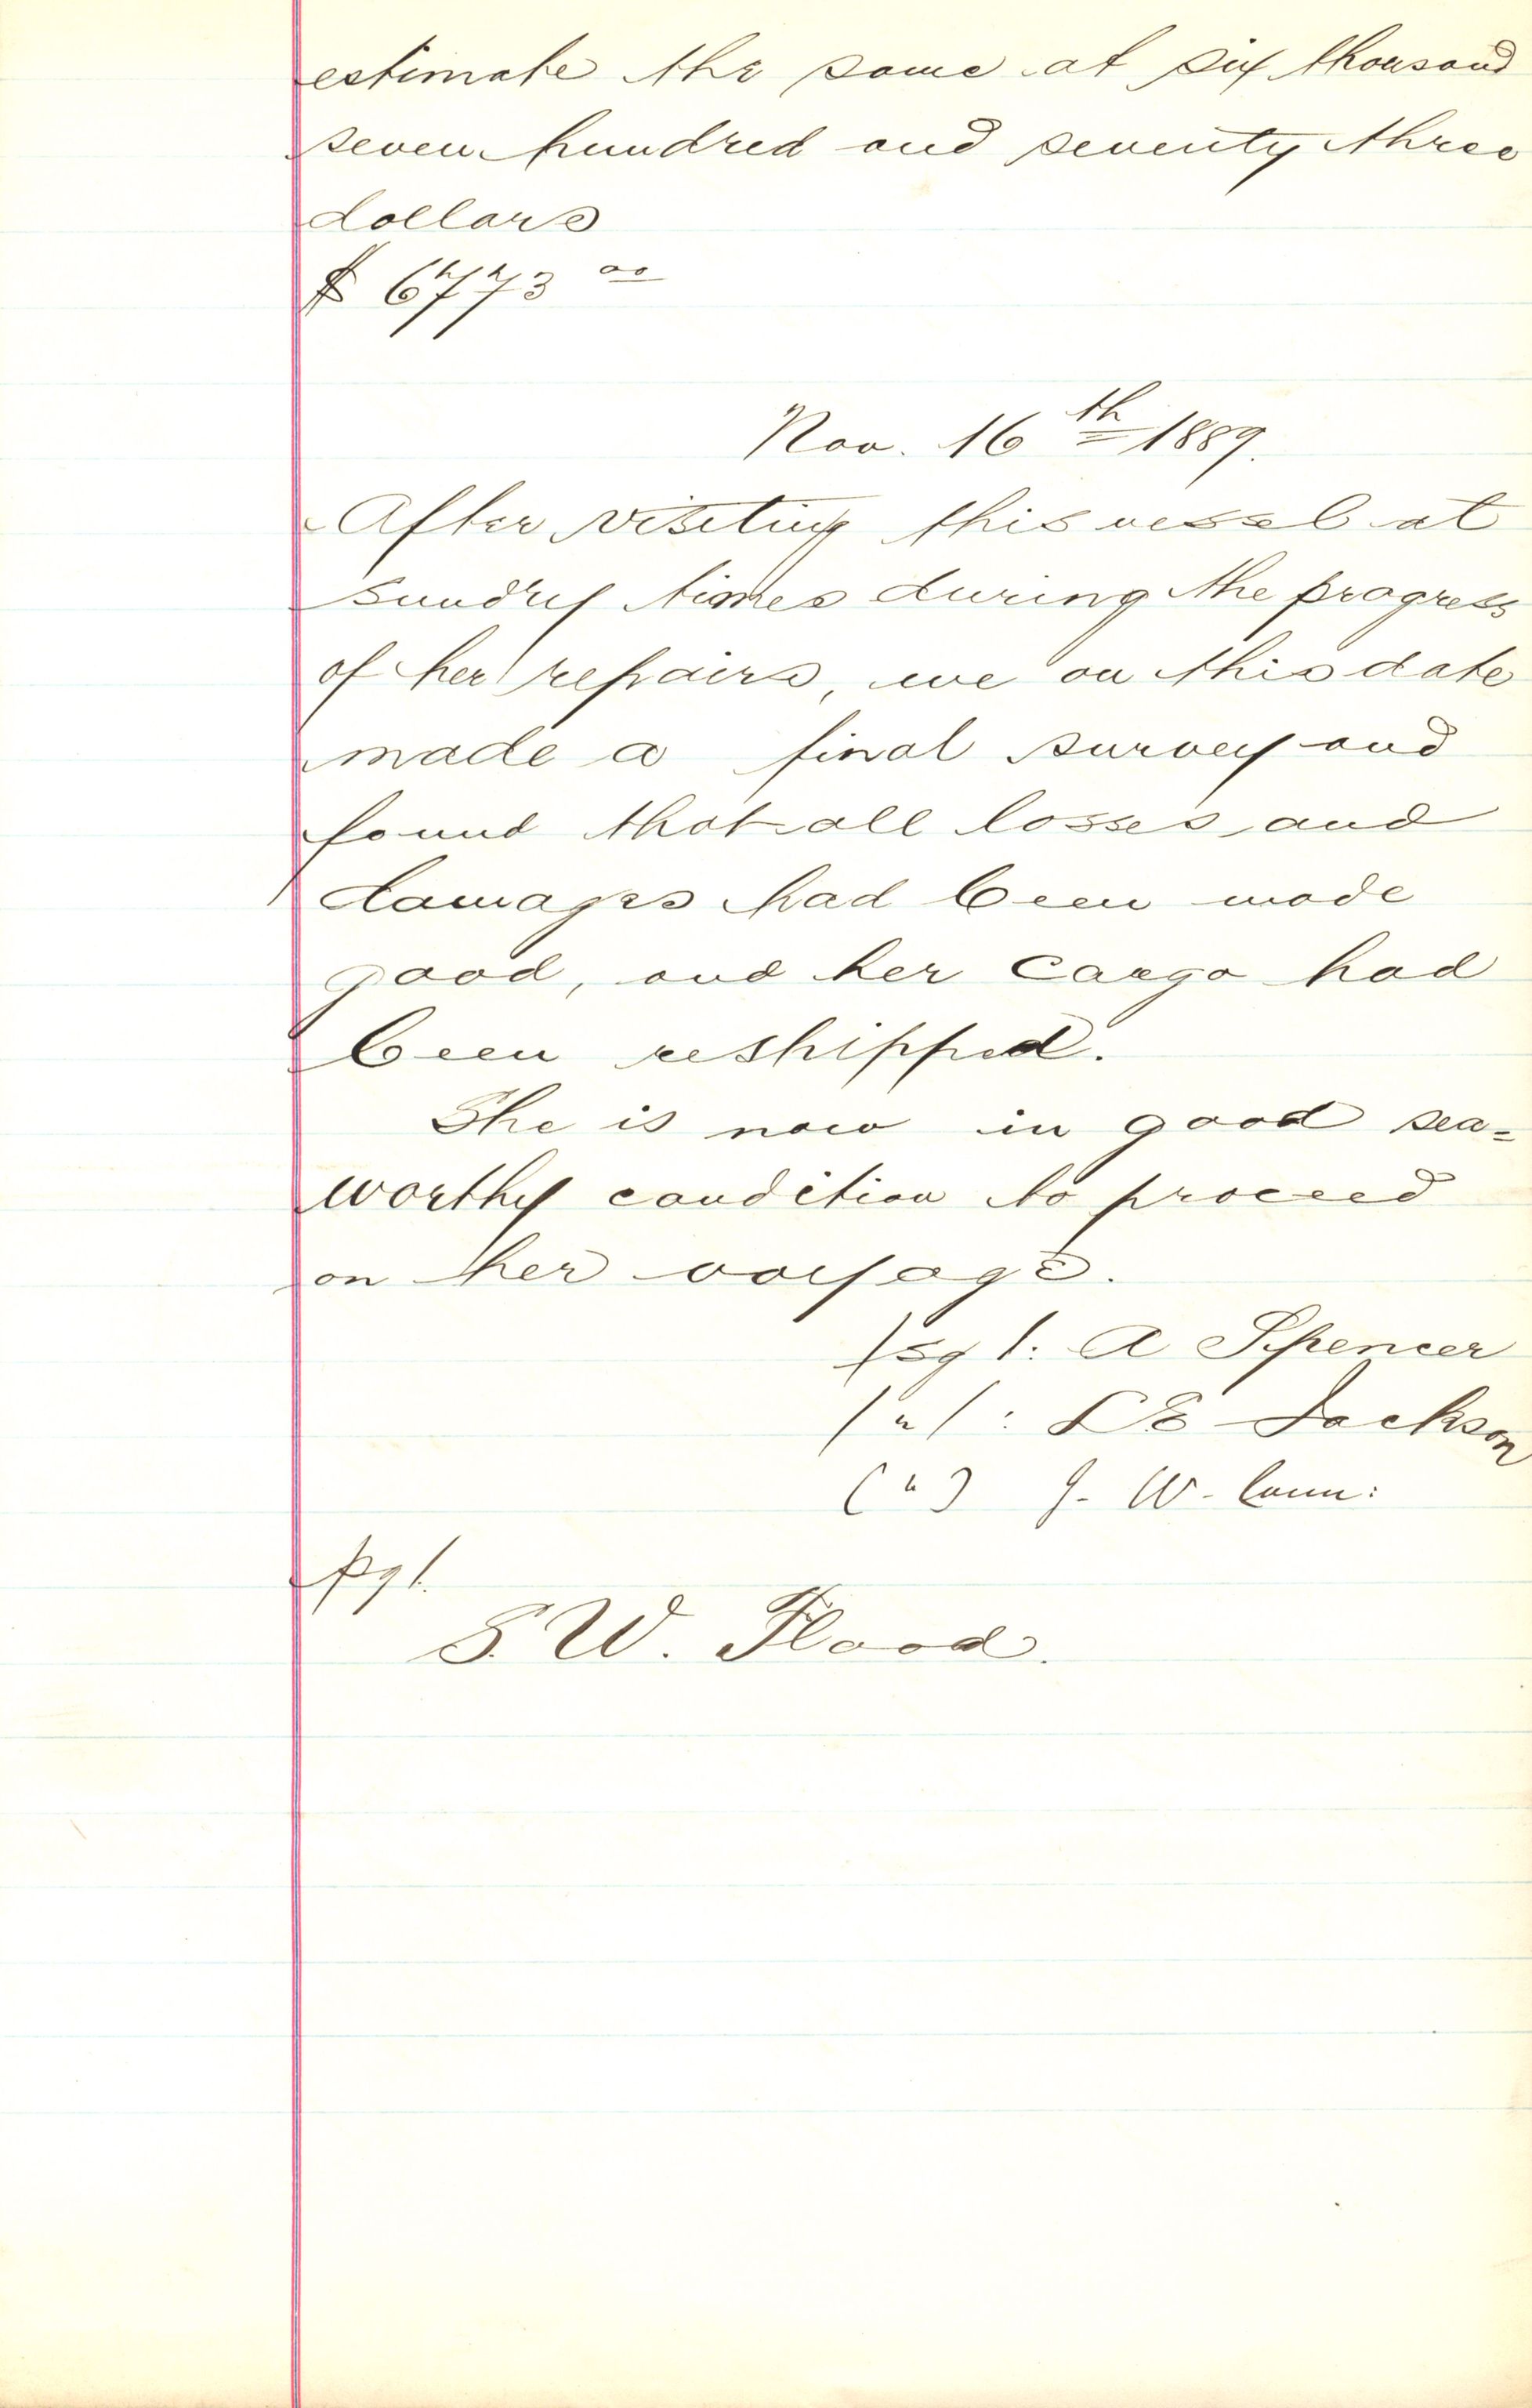 estimate the same at six thousand
seven hundred and seventy three
dollars
$ 6773 00
Nov. 16th 1889.
After visiting this vessel at
sundry times during the progress
of her repairs, we on this date
made a final survey and
found that all losses and
damages had been made
good, and her cargo had
been reshipped.
She is now in good sea=
worthy condition to proceed
on her voyage.
/sg/: A Spencer
/"/ : L E Jackson
(") J. W. Conn:
sg/.
S. W. Flood.